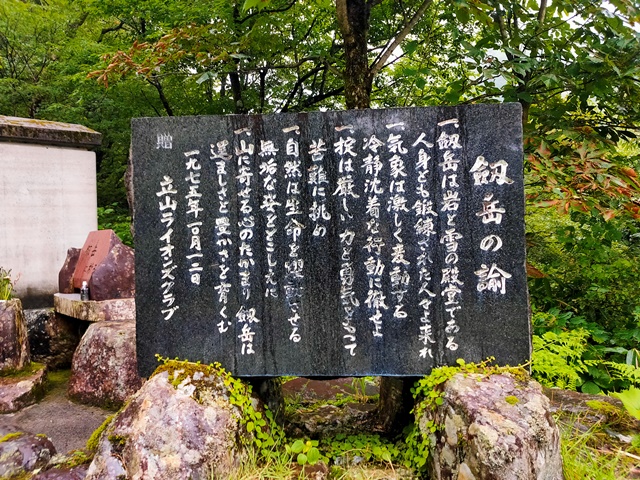 劔岳の諭
一、劔岳は岩と雪の殿堂である
人身とも鍛錬された人々よ来れ
一、気象は激しく変動する
冷静沈着な行動に徹せよ
一、掟は厳しい 力と勇気をもって
苦難に挑め
一、自然は生命を
無垢な姿をとこしえに
一、山に寄せる心のたかまり 劔岳は
逞ましさと豊かさを育くむ
一九七五年 月一二日
立山ライオンズクラブ
贈